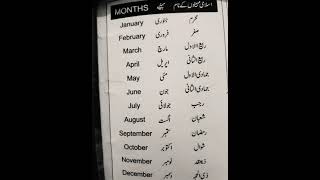 MONTHS مہینے اسلامی مہینوں کے نام
January جنوری محرم
February فروری صفر
March مارچ ربیع الاول
April اپریل ربیع الثانی
May مئی جمادی الاول
June جون جمادی الثانی
July جولائی رجب
August اگست شعبان
September ستمبر رمضان
October اکتوبر شوال
November نومبر ذیقعد
December دسمبر ذی الحجہ